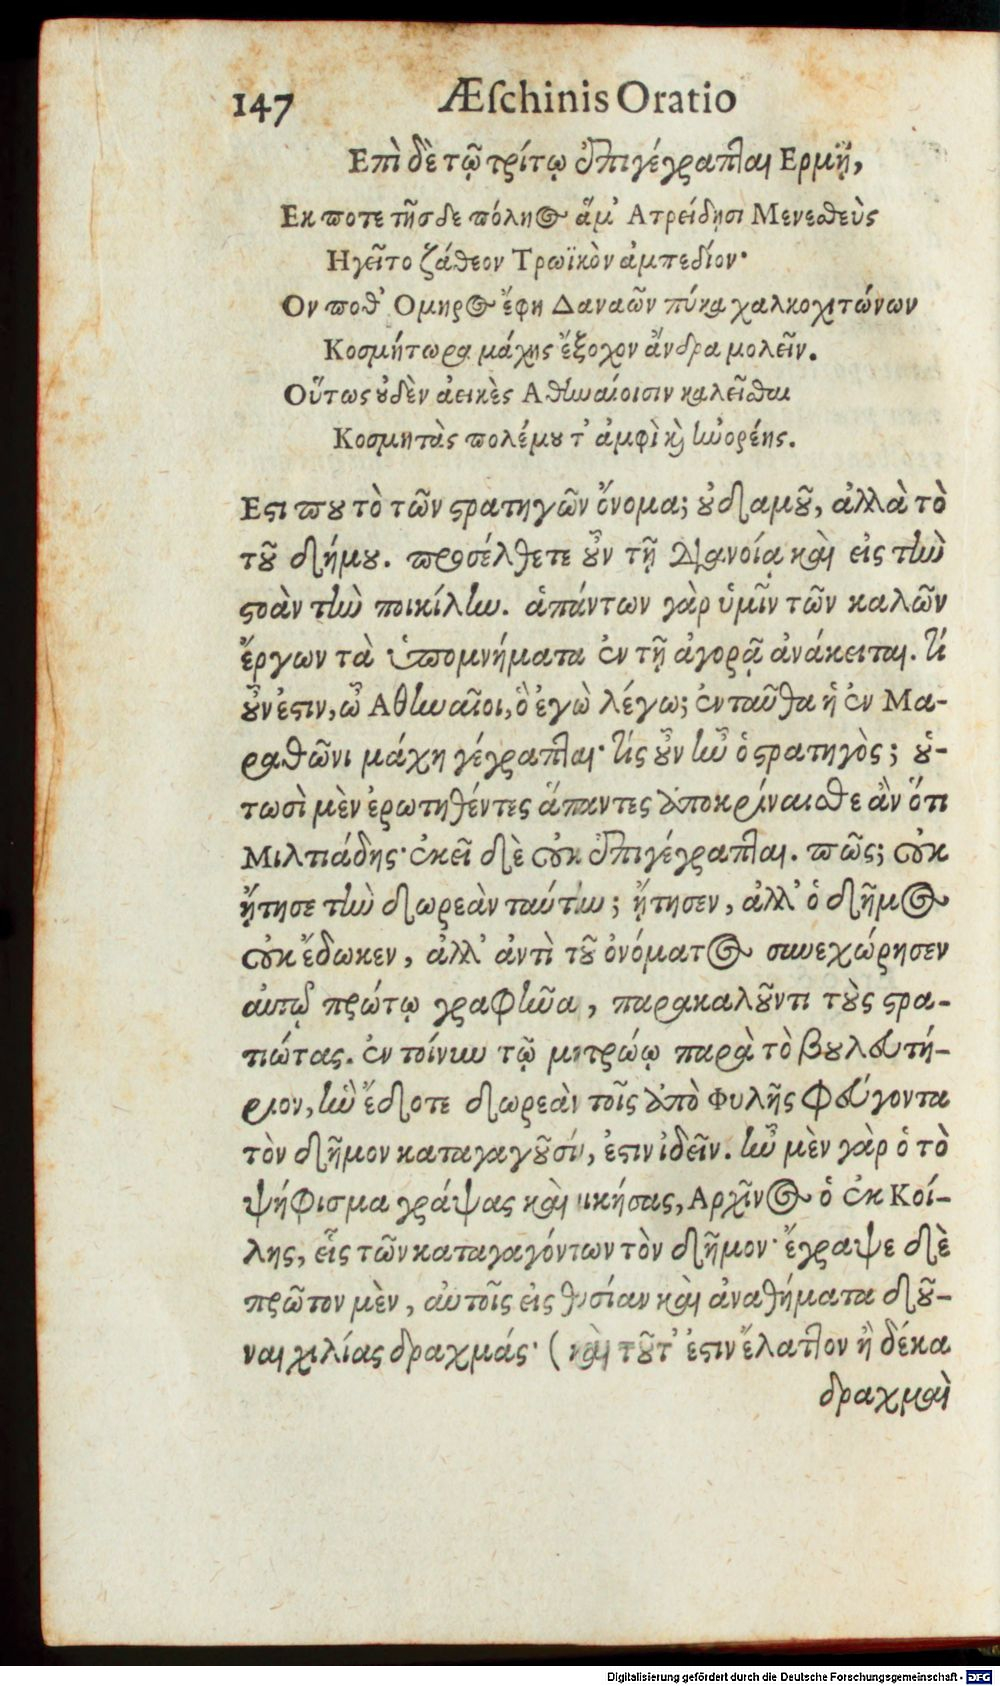 147 Æſchinis Oratio
Επὶ δὲ τῷ τρίτῳ ἐπιγέγραπται Ερμῇ,
Εκ ποτε τῆσδε πόληος ἅμ' Ατρείδησι Μενεσθεὺς
Ηγεῖτο ζάθεον Τρωϊκὸν ἀμπεδίον·
Ον ποθ' Ομηρος ἔφη Δαναῶν πύκα χαλκοχιτώνων
Κοσμήτωρα μάχης ἔξοχον ἄνδρα μολεῖν.
Οὕτως οὐδὲν ἀεικὲς Αθηναίοισιν καλεῖσθαι
Κοσμητὰς πολέμου τ' ἀμφὶ καὶ ἠνορέης.
Εστι που τὸ τῶν στρατηγῶν ὄνομα; οὐδαμοῦ, ἀλλὰ τὸ
τοῦ δήμου. προσέλθετε οὖν τῇ διανοίᾳ καὶ εἰς τὴν
στοὰν τὴν ποικίλην. ἁπάντων γὰρ ὑμῖν τῶν καλῶν
ἔργων τὰ ὑπομνήματα ἐν τῇ ἀγορᾷ ἀνάκειται. τί
οὖν ἐστιν, ὦ Αθηναῖοι, ὃ ἐγὼ λέγω; ἐνταῦθα ἡ ἐν Μα-
ραθῶνι μάχη γέγραπται· τίς οὖν ἦν ὁ στρατηγὸς; οὑ-
τωσὶ μὲν ἐρωτηθέντες ἅπαντες ἀποκρίναισθε ἂν ὅτι
Μιλτιάδης· ἐκεῖ δὲ οὐκ ἐπιγέγραπται. πῶς; οὐκ
ᾔτησε τὴν δωρεὰν ταύτην; ᾔτησεν, ἀλλ' ὁ δῆμος
οὐκ ἔδωκεν, ἀλλ' ἀντὶ τοῦ ὀνόματος συνεχώρησεν
αὐτῷ πρώτῳ γραφῆναι, παρακαλοῦντι τοὺς στρα-
τιώτας. ἐν τοίνυν τῷ μητρώῳ παρὰ τὸ βουλευτή-
ριον, ἣν ἔδοτε δωρεὰν τοῖς ἀπὸ Φυλῆς φεύγοντα
τὸν δῆμον καταγαγοῦσιν, ἔστιν ἰδεῖν. ἦν μὲν γὰρ ὁ τὸ
ψήφισμα γράψας καὶ νικήσας, Αρχῖνος ὁ ἐκ Κοί-
λης, εἷς τῶν καταγαγόντων τὸν δῆμον· ἔγραψε δὲ
πρῶτον μὲν, αὐτοῖς εἰς θυσίαν καὶ ἀναθήματα δοῦ-
ναι χιλίας δραχμάς· (καὶ τοῦτ' ἐστιν ἔλαττον ἢ δέκα
δραχμαὶ
Digitalisierung gefördert durch die Deutsche Forschungsgemeinschaft - DFG